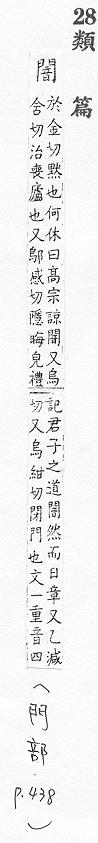 28 類篇
闇
於金切黙也何休曰高宗諒闇又烏
含切治喪廬也又鄔感切隱晦皃禮
記君子之道闇然而日章又乙減
切又烏紺切閉門也文一重音四
(門部．
p.438)